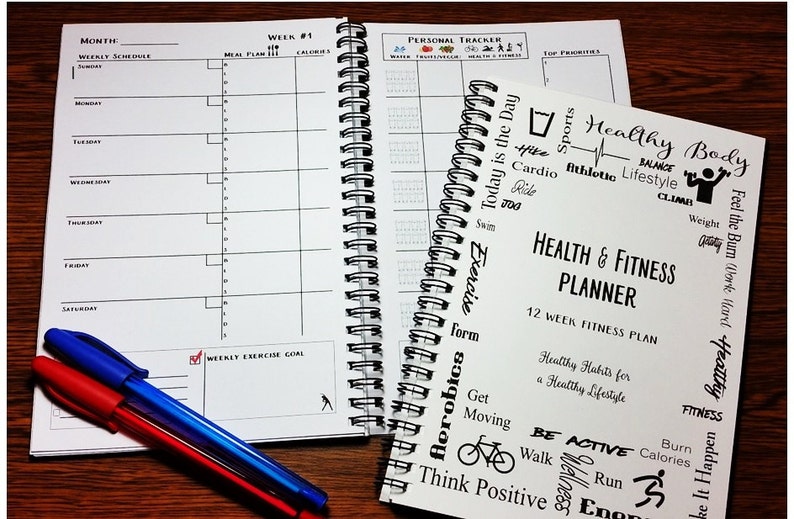 Month:
Week #1
Weekly Schedule
Meal Plan
Calories
Sunday
Monday
Tuesday
Wednesday
Thursday
Friday
Saturday
B
L
D
S
B
L
D
S
B
L
D
S
B
L
D
S
B
L
D
S
B
L
D
S
B
L
D
S
Weekly Exercise Goal
Personal Tracker
Water
Fruits/Veggies
Health & Fitness
Top Priorities
1
2
Healthy Body
Today is the Day
Sports
Hike
Cardio
Athletic
BALANCE
Lifestyle
CLIMB
Ride
JOG
Weight
Activity
Swim
Feel the Burn
Work Hard
Exercise
Health & Fitness
Planner
12 Week Fitness Plan
Healthy Habits for
a Healthy Lifestyle
Form
Healthy
FITNESS
Aerobics
Get
Moving
BE ACTIVE
Burn
Calories
Walk
Wellness
Run
ke It Happen
Think Positive
Energ